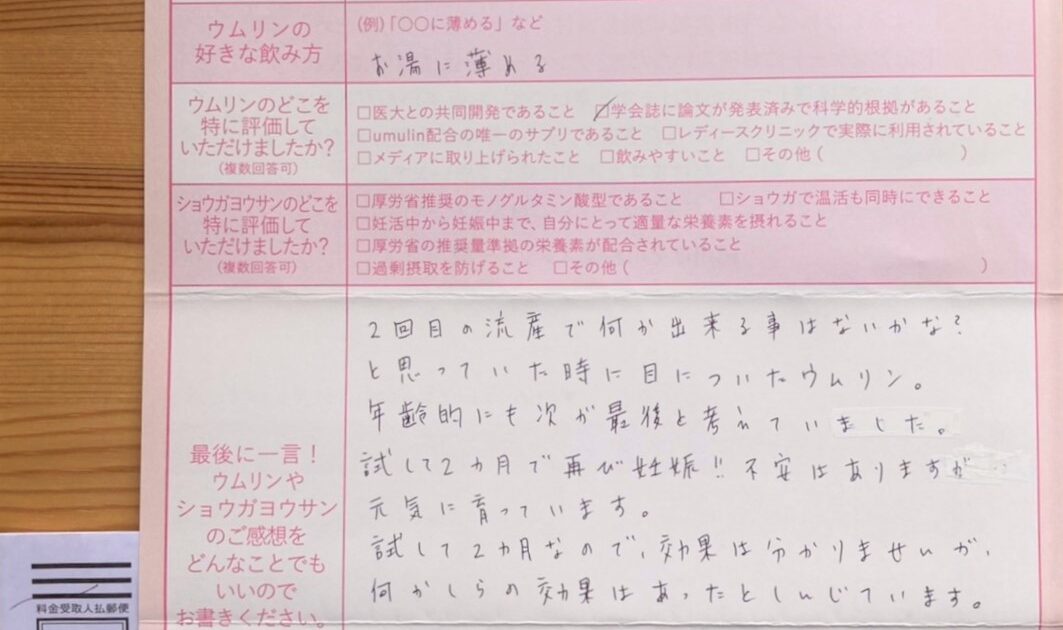 ウムリンの
好きな飲み方
(例)「〇〇に薄める」など
お湯に薄める
ウムリンのどこを
特に評価して
いただけましたか?
(複数回答可)
□医大との共同開発であること □学会誌に論文が発表済みで科学的根拠があること
□umulin配合の唯一のサプリであること □レディースクリニックで実際に利用されていること
□メディアに取り上げられたこと □飲みやすいこと □その他( )
ショウガヨウサンのどこを
特に評価して
いただけましたか?
(複数回答可)
□厚労省推奨のモノグルタミン酸型であること □ショウガで温活も同時にできること
□妊活中から妊娠中まで、自分にとって適量な栄養素を摂れること
□厚労省の推奨量準拠の栄養素が配合されていること
□過剰摂取を防げること □その他( )
最後に一言!
ウムリンや
ショウガヨウサン
のご感想を
どんなことでも
いいので
お書きください。
2回目の流産で何か出来る事はないかな?
と思っていた時に目についたウムリン。
年齢的にも次が最後と考えていました。
試して2カ月で再び妊娠!!不安はありますが
元気に育っています。
試して2カ月なので、効果は分かりませいが、
何かしらの効果はあったとしんじています。
料金受取人払郵便